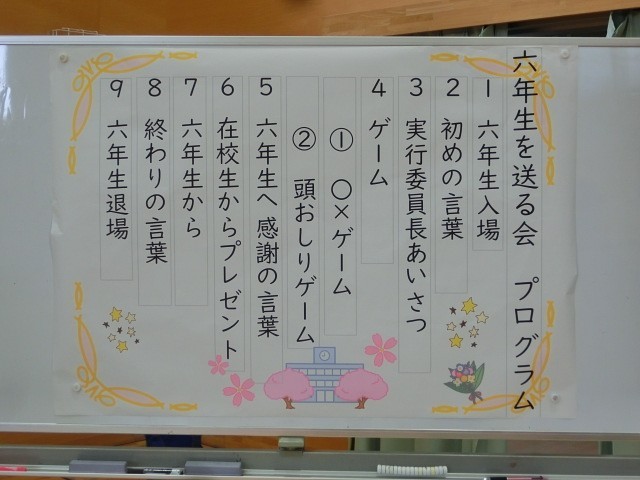 六年生を送る会　プログラム
1 六年生入場
2 初めの言葉
3 実行委員長あいさつ
4 ゲーム
① ○×ゲーム
② 頭おしりゲーム
5 六年生へ感謝の言葉
6 在校生からプレゼント
7 六年生から
8 終わりの言葉
9 六年生退場